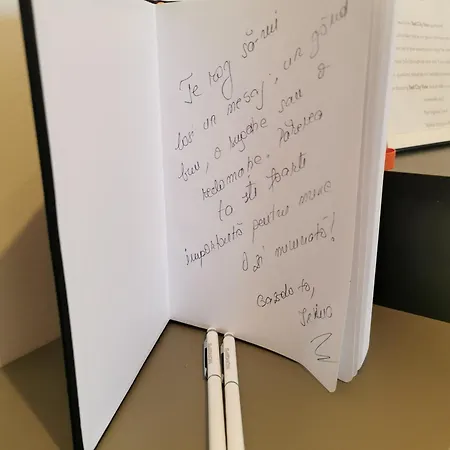 Te rog să-mi
lași un mesaj, un gând
bun, o sugestie sau o
reclamație. Părerea
ta este foarte
importantă pentru mine
O zi minunată!
Gazda ta,